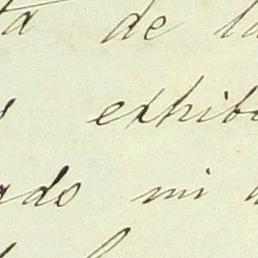 ta de la
s exhib
ado mi